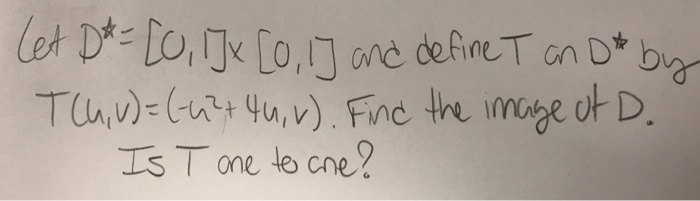 Let D* = [0,1]x [0,1] and define T on D* by
T(u,v)=(-u²+4u,v). Find the image of D.
Is T one to one?